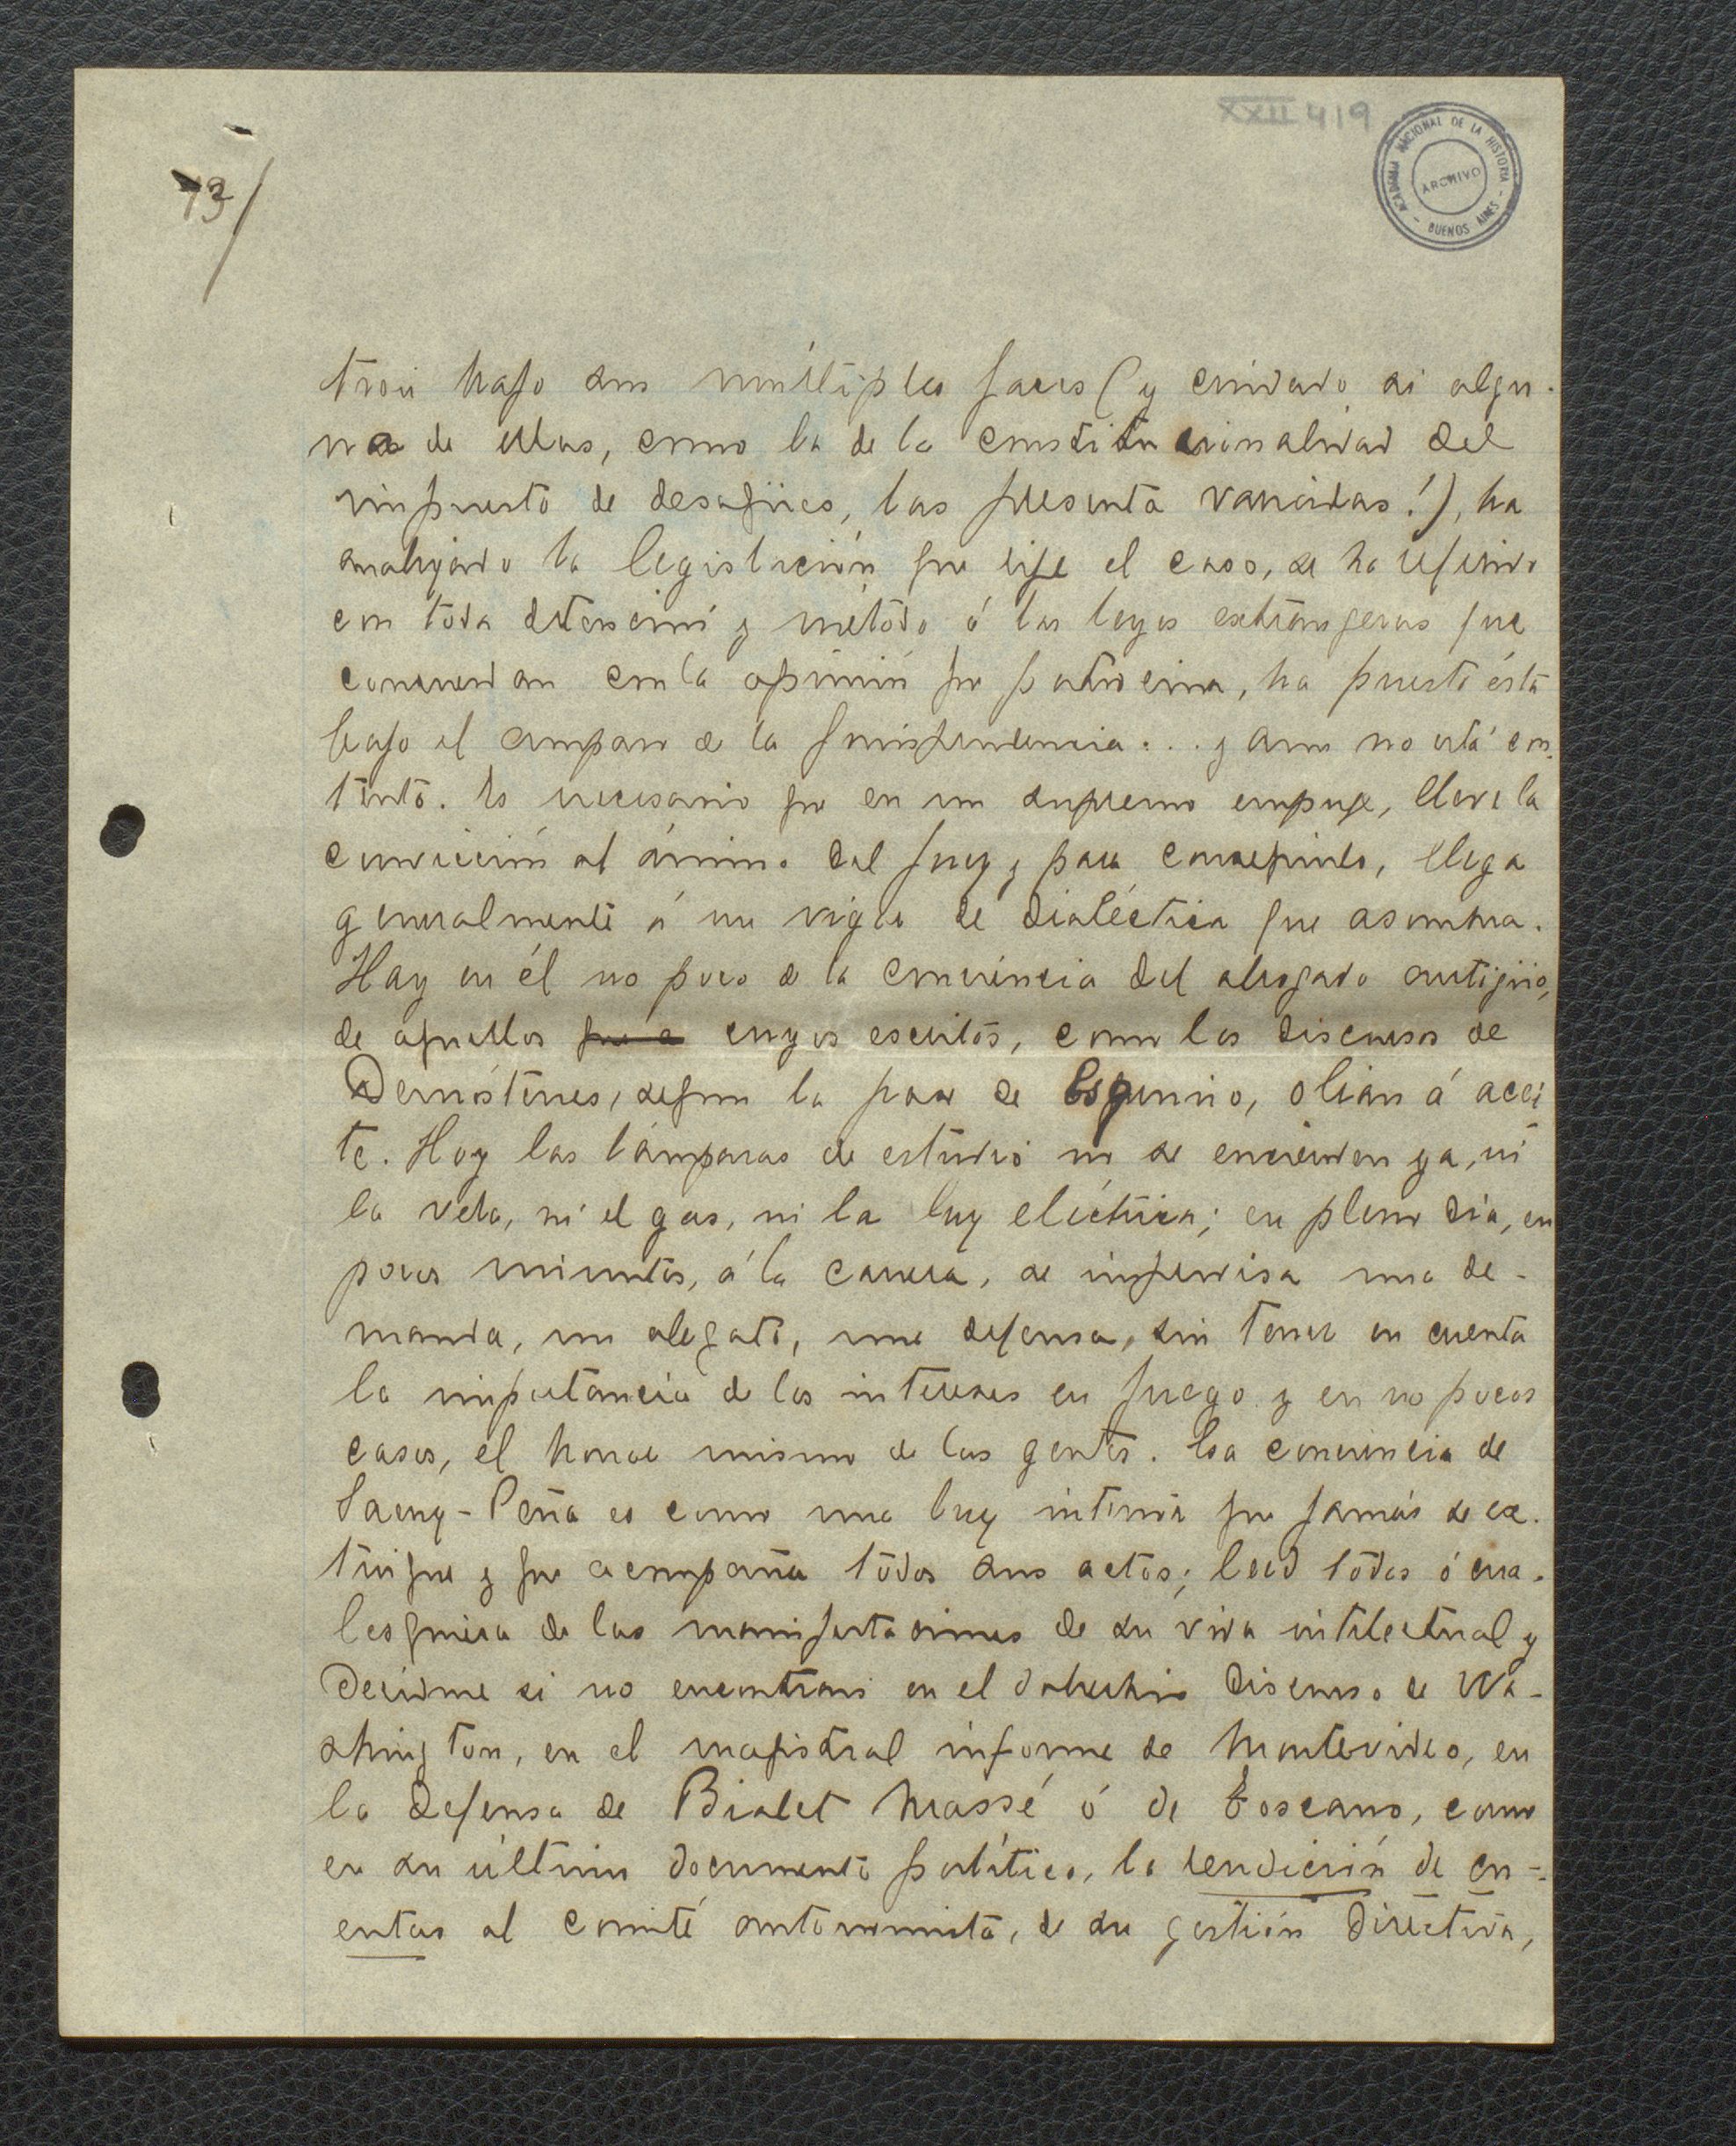 XXII 419
ACADEMIA NACIONAL DE LA HISTORIA - BUENOS AIRES -
ARCHIVO
13/
bajo sus múltiples faces (y cuidado si algu-
na de ellas, como la de la constitucionalidad del
impuesto de desagües, las presenta variadas!), ha
analizado la legislación que rije el caso, se ha referido
con toda detención y método á las leyes extrangeras que
concuerdan con la opinión que patrocina, ha puesto ésta
bajo el amparo de la jurisprudencia... y aun no está con-
tento. Es necesario que en un supremo empuje, lleve la
convicción al ánimo del juez y para conseguirlo, llega
generalmente á un vigor de dialéctica que asombra.
Hay en él no poco de la conciencia del abogado antigüo,
de aquellos cuyos escritos, como los discursos de
Demóstenes, segun la frase de Esquinio, olian á acei
te. Hoy las lámparas de estudio no se encienden ya, ni
la vela, ni el gas, ni la luz eléctrica; en pleno dia, en
pocos minutos, á la carrera, se improvisa una de-
manda, un alegato, una defensa, sin tener en cuenta
la importancia de los intereses en juego y en no pocos
casos, el honor mismo de las gentes. Esa conciencia de
Saenz-Peña es como una luz interior que jamás se ex-
tingue y que acompaña todos sus actos; leed todas ó cua-
lesquiera de las manifestaciones de su vida intelectual y
decidme si no encontrais en el discurso de Wa-
shington, en el magistral informe de Montevideo, en
la defensa de Bialet Massé ó de Toscano, como
en su último documento político, la rendición de cu-
entas al comité autonomista, de su gestión directiva,